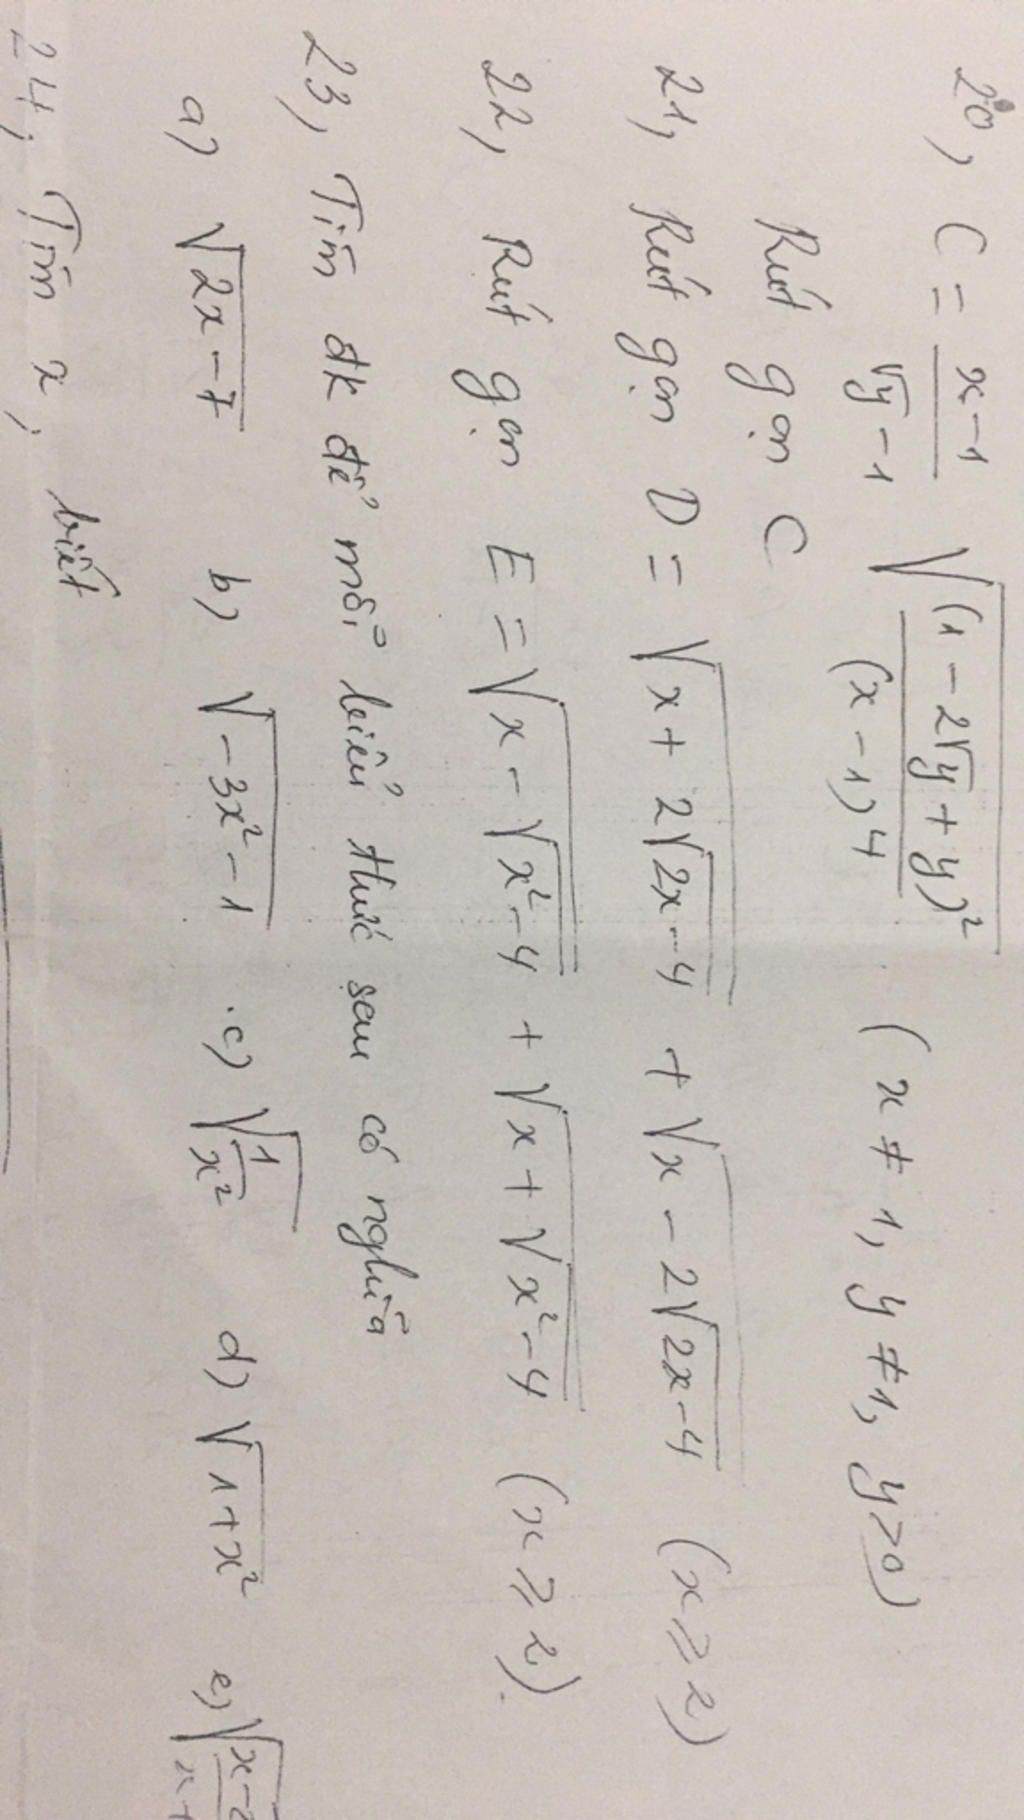 20, C = \frac{x-1}{\sqrt{y}-1} \sqrt{\frac{(1-2\sqrt{y}+y)^2}{(x-1)^4}} (x ≠ 1, y ≠ 1, y > 0)
Rút gọn C
21, Rút gọn D = \sqrt{x+2\sqrt{2x-4}} + \sqrt{x-2\sqrt{2x-4}} (x ⩾ 2)
22, Rút gọn E = \sqrt{x-\sqrt{x^2-4}} + \sqrt{x+\sqrt{x^2-4}} (x ⩾ 2).
23, Tìm đk để mỗi biểu thức sau có nghĩa
a) \sqrt{2x-7} b) \sqrt{-3x^2-1} c) \sqrt{\frac{1}{x^2}} d) \sqrt{1+x^2} e)
24, Tìm x, biết